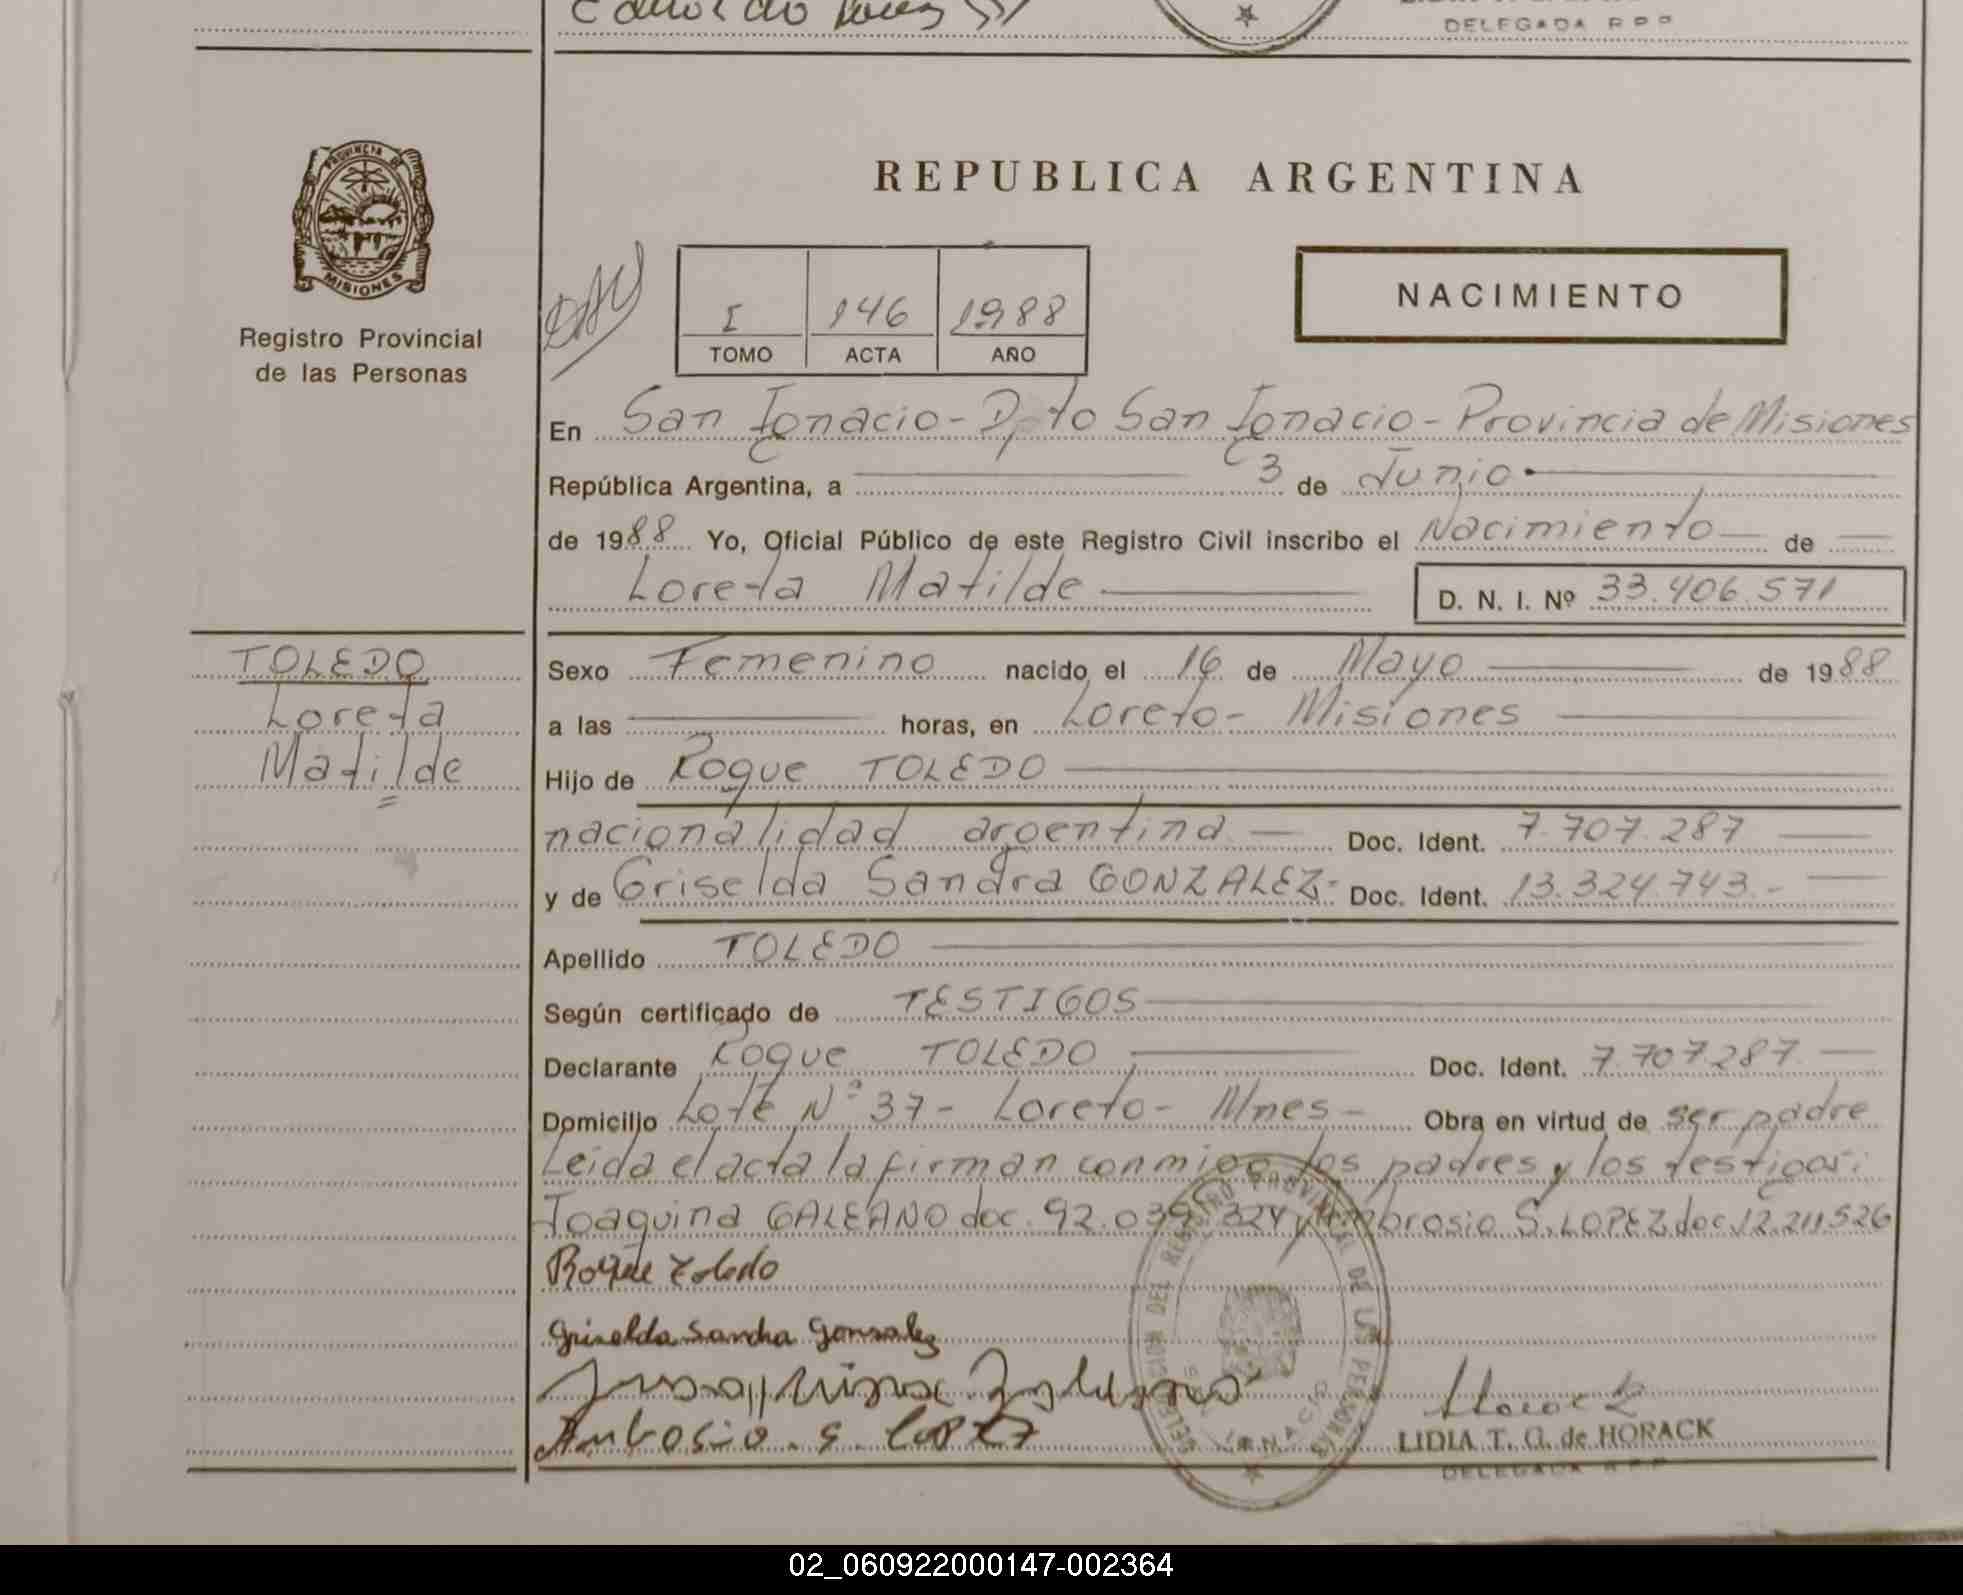 DELEGADA R P P
PROVINCIA DE
MISIONES
Registro Provincial
de las Personas
REPUBLICA ARGENTINA
I 146 1988
TOMO ACTA AÑO
NACIMIENTO
En San Ignacio - Dpto San Ignacio - Provincia de Misiones
República Argentina, a 3 de Junio
de 1988 Yo, Oficial Público de este Registro Civil inscribo el Nacimiento de
Loreta Matilde D. N. I. Nº 33.406.571
TOLEDO
Loreta
Matilde
Sexo Femenino nacido el 16 de Mayo de 1988
a las horas, en Loreto - Misiones
Hijo de Roque TOLEDO
nacionalidad argentina Doc. Ident. 7.707.287
y de Griselda Sandra GONZALEZ - Doc. Ident. 13.324.743.-
Apellido TOLEDO
Según certificado de TESTIGOS
Declarante Roque TOLEDO Doc. Ident. 7.707.287
Domicilio Lote Nº 37 - Loreto - Mnes - Obra en virtud de ser padre
Leida el acta la firman conmigo los padres y los testigos:
Joaquina GALEANO doc. 92.039.324 y Ambrosio S. LOPEZ doc. 12.211.526
Roque Toledo
Griselda Sandra Gonzalez
Ambrosio. S. LOPEZ
DELEGACION DEL REGISTRO PROVINCIAL DE LAS PERSONAS
IGNACIO
LIDIA T. G. de HORACK
DELEGADA R P P
02_060922000147-002364